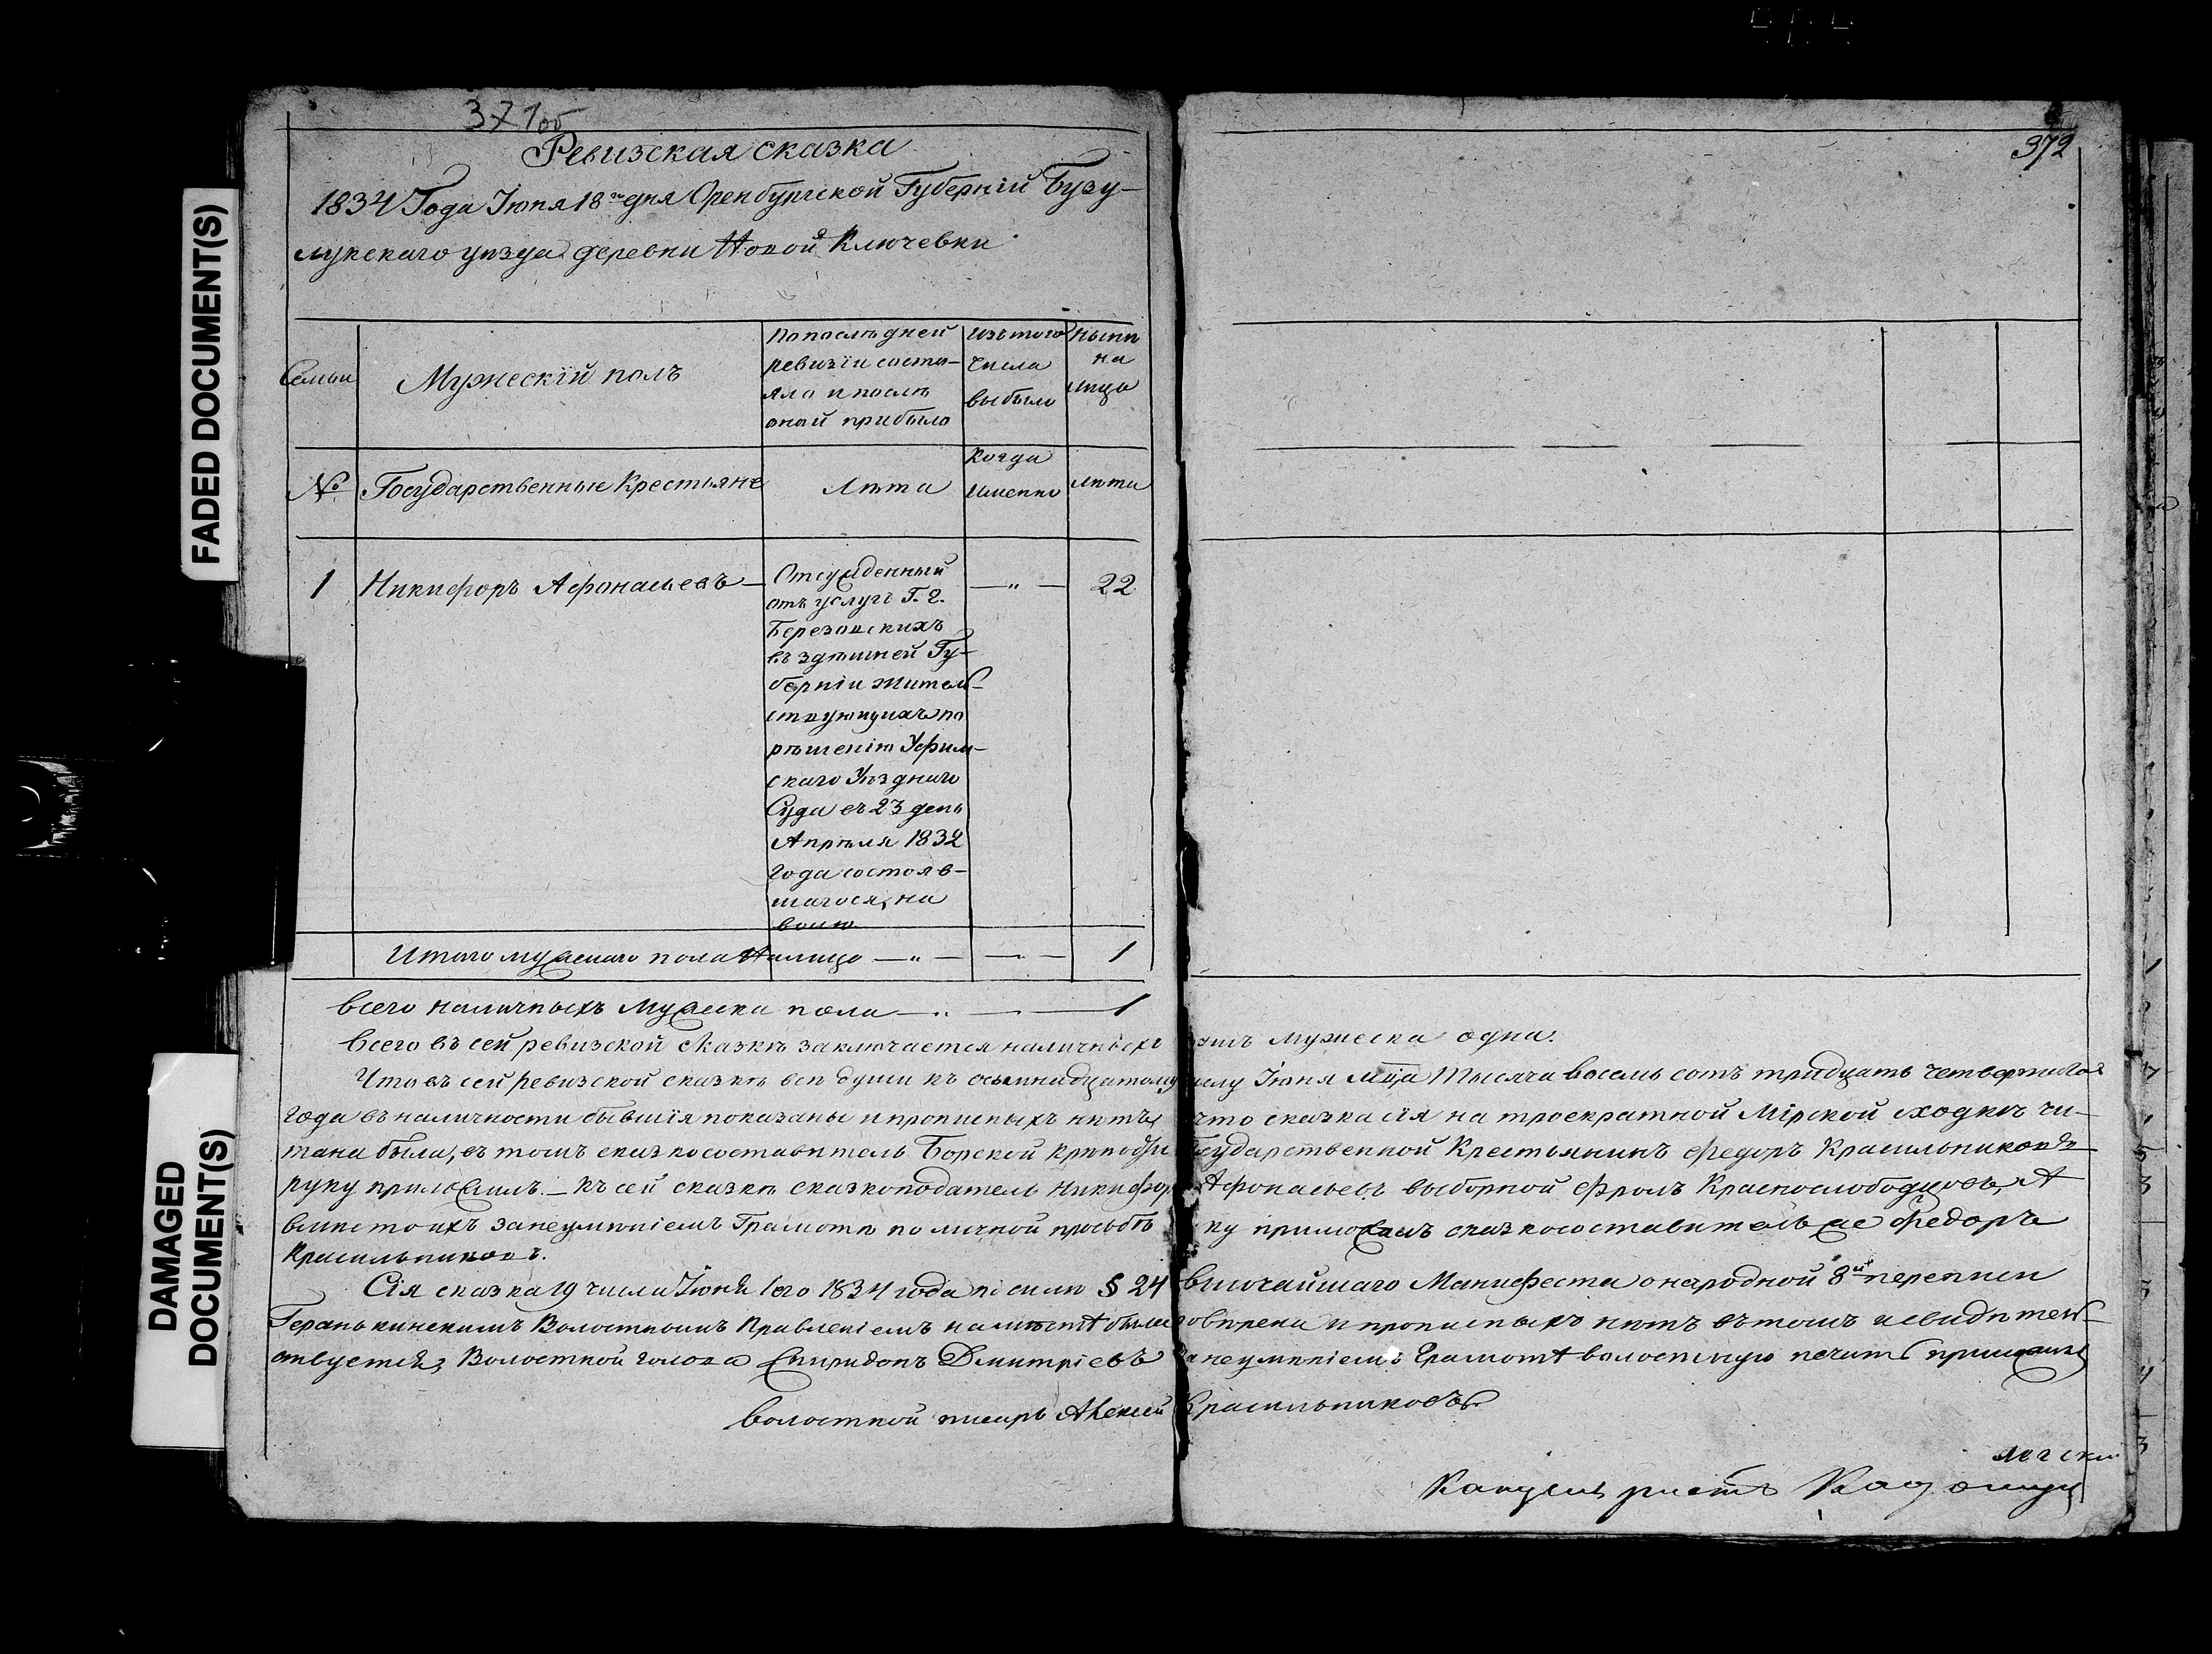 371об
Ревизская сказка
1834 Года Июня 18го дня Оренбургской Губерній Бузу-
лукскаго уѣзда деревни Новой Ключевки
Семьи
Мужескій полъ
По послѣдней
ревизіи состо-
яло и послѣ
оной прибыло
Изъ того
числа
выбыло
Нынѣ
на
лицо
№
Государственные Крестьяне
Лѣта
Когда
именно
лѣта
1
Никифоръ Афонасьевъ
Отсужденный
отъ услугъ Г. г.
Березовскихъ
въ здѣшней Гу-
берніи житель-
ствующихъ по
рѣшенію Уфим-
скаго Уѣзднаго
Суда въ 23 день
Апрѣля 1832
года состояв-
шагося, на
волю
22
Итого мужеска пола на лицо 1
всего наличныхъ мужеска пола 1
372
Всего въ сей ревизской сказкѣ заключается наличныхъ душъ мужеска одна.
Что въ сей ревизской сказкѣ всѣ души къ осьмнадцатому числу Іюня мца тысяча восемь сотъ тридцать четвертаго
года въ наличности бывшія показаны и прописныхъ нѣтъ, что сказка сія на троекратной Мірской сходкѣ чи-
тана была, въ томъ сказкосоставитель Борской крѣпости Государственной Крестьянинъ Федоръ Красильниковъ
руку приложилъ. — Къ сей сказкѣ сказкоподатель Никифоръ Афонасьевъ выборной Фролъ Краснослободцовъ, А
вмѣсто ихъ за неумѣніемъ Грамотѣ по личной прозьбѣ руку приложилъ сказкосоставитель же Федоръ
Красильниковъ.
Сія сказка 19 числа Іюня 1834 года по силѣ § 24 высочайшаго Манифеста о народной 8й переписи
Геранькинскимъ Волостнымъ Правленіемъ на мѣстѣ была повѣрена и прописныхъ нѣтъ въ томъ и свидѣтель-
ствуется, Волостной голова Спиридонъ Дмитріевъ за неумѣніемъ Грамотѣ волостную печать приложилъ
волостной писарь Алексей Красильниковъ
Канцеляристъ
FADED DOCUMENT(S)
DAMAGED
DOCUMENT(S)